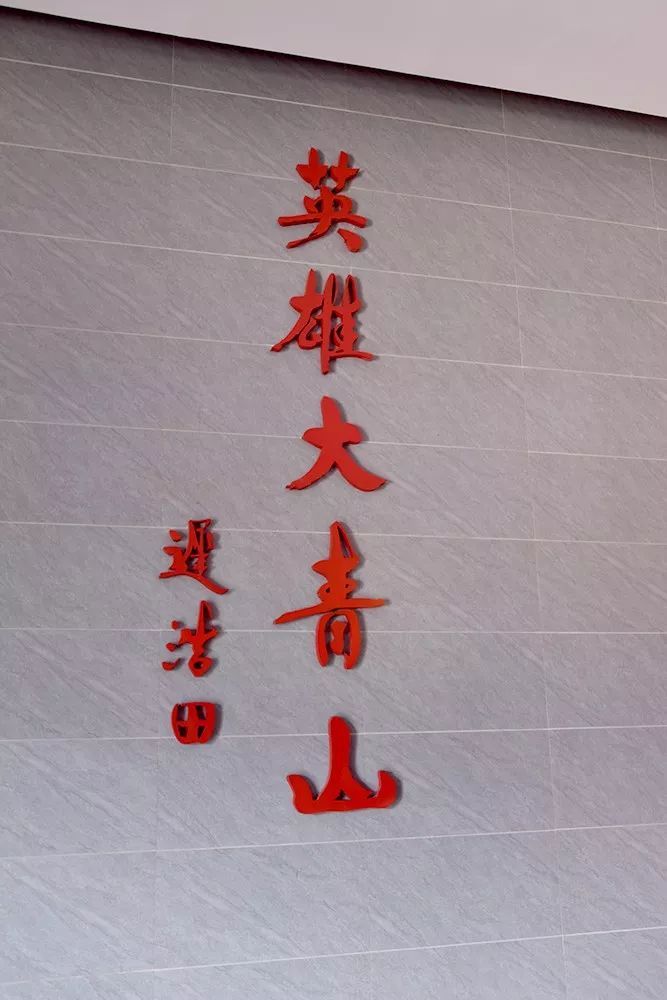 英雄大青山
遲浩田